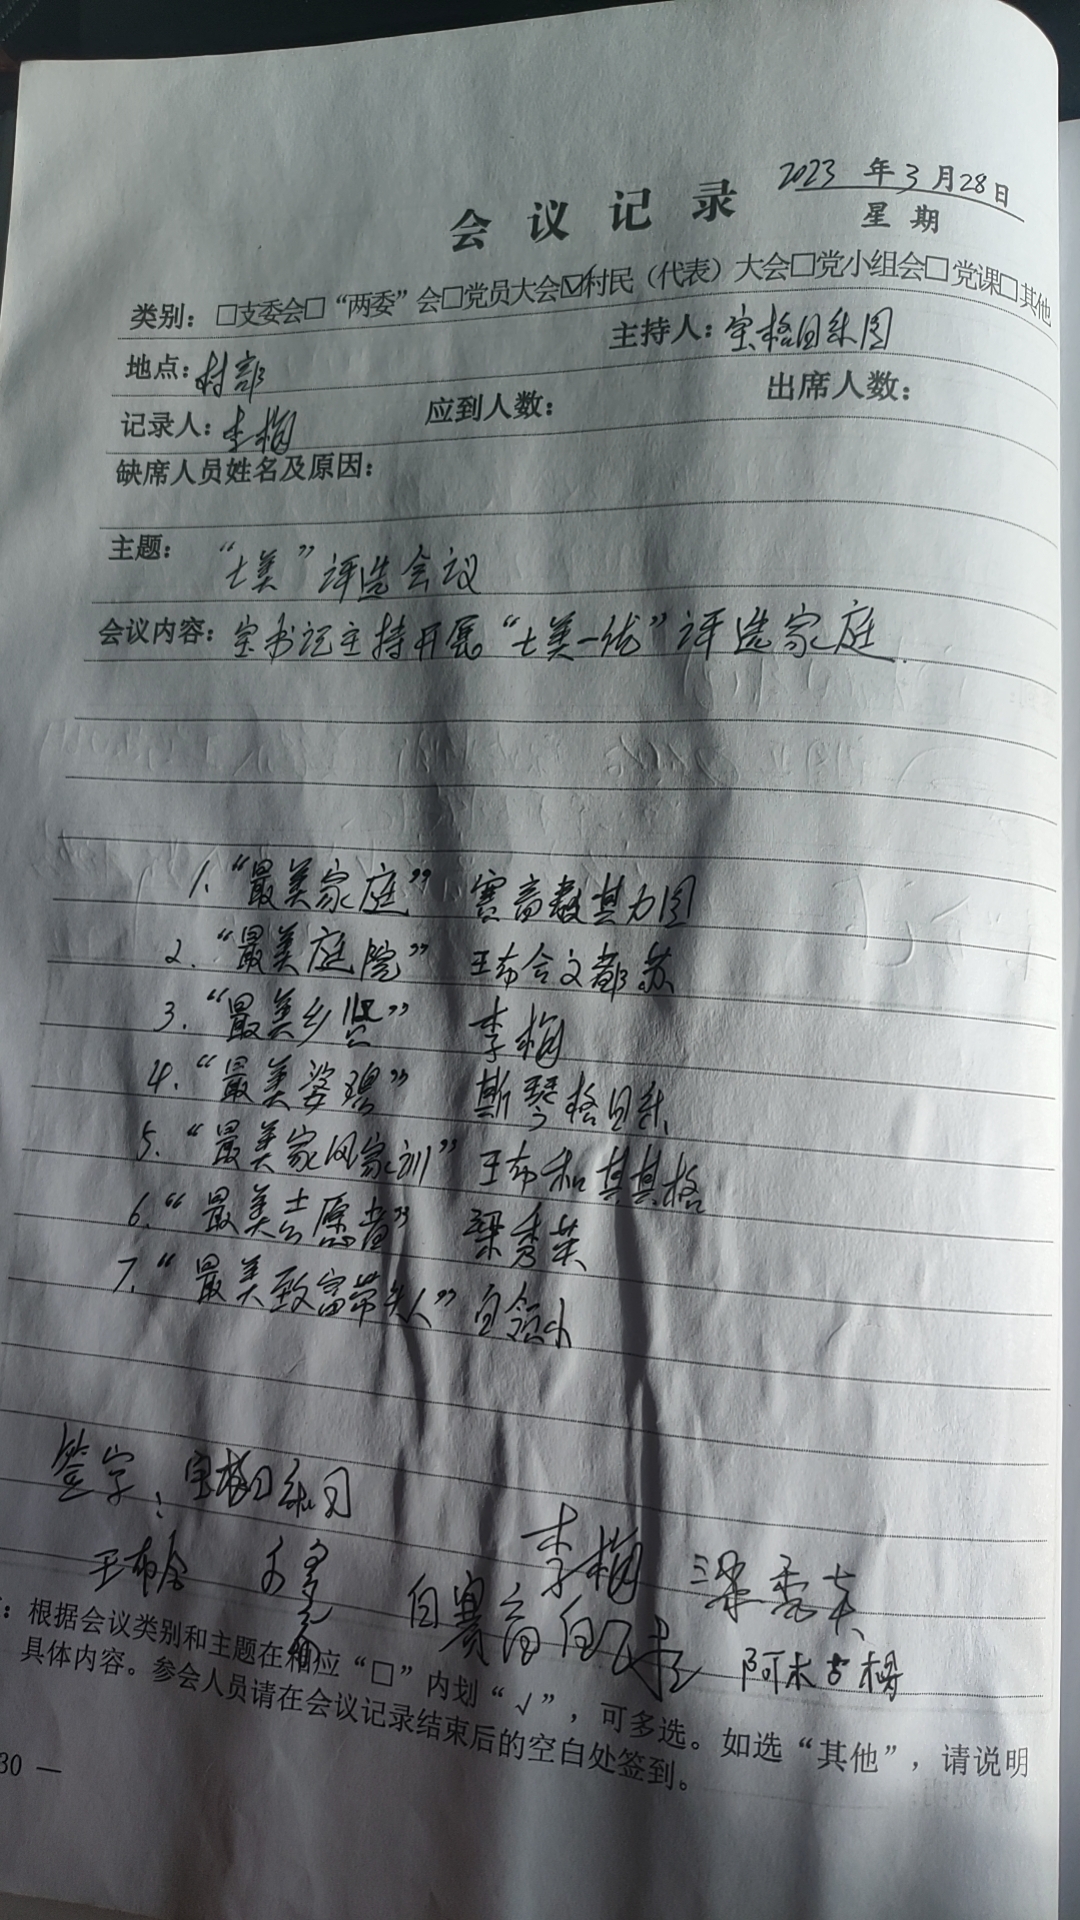 2023 年 3 月 28 日
会 议 记 录
星 期
类别：□支委会□“两委”会□党员大会☑村民（代表）大会□党小组会□党课□其他
地点：村部 主持人：宝格日乐图
记录人：李梅 应到人数： 出席人数：
缺席人员姓名及原因：
主题： “七美”评选会议
会议内容：宝书记主持开展“七美一优”评选家庭.
1.“最美家庭” 赛音敖其力图
2.“最美庭院” 王布合文都苏
3.“最美乡贤” 李梅
4.“最美婆媳” 斯琴格日乐
5.“最美家风家训” 王布和其其格
6.“最美志愿者” 梁秀英
7.“最美致富带头人” 白领小
签字：宝格日乐图
李梅 梁秀英
王布合 白赛音 阿木古楞
：根据会议类别和主题在相应“□”内划“√”，可多选。如选“其他”，请说明
具体内容。参会人员请在会议记录结束后的空白处签到。
30 —